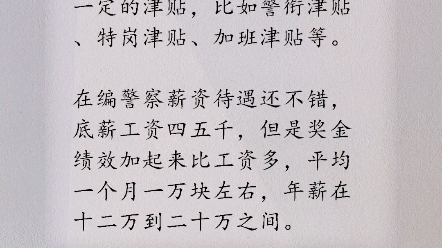 一定的津贴，比如警衔津贴
、特岗津贴、加班津贴等。
在编警察薪资待遇还不错，
底薪工资四五千，但是奖金
绩效加起来比工资多，平均
一个月一万块左右，年薪在
十二万到二十万之间。